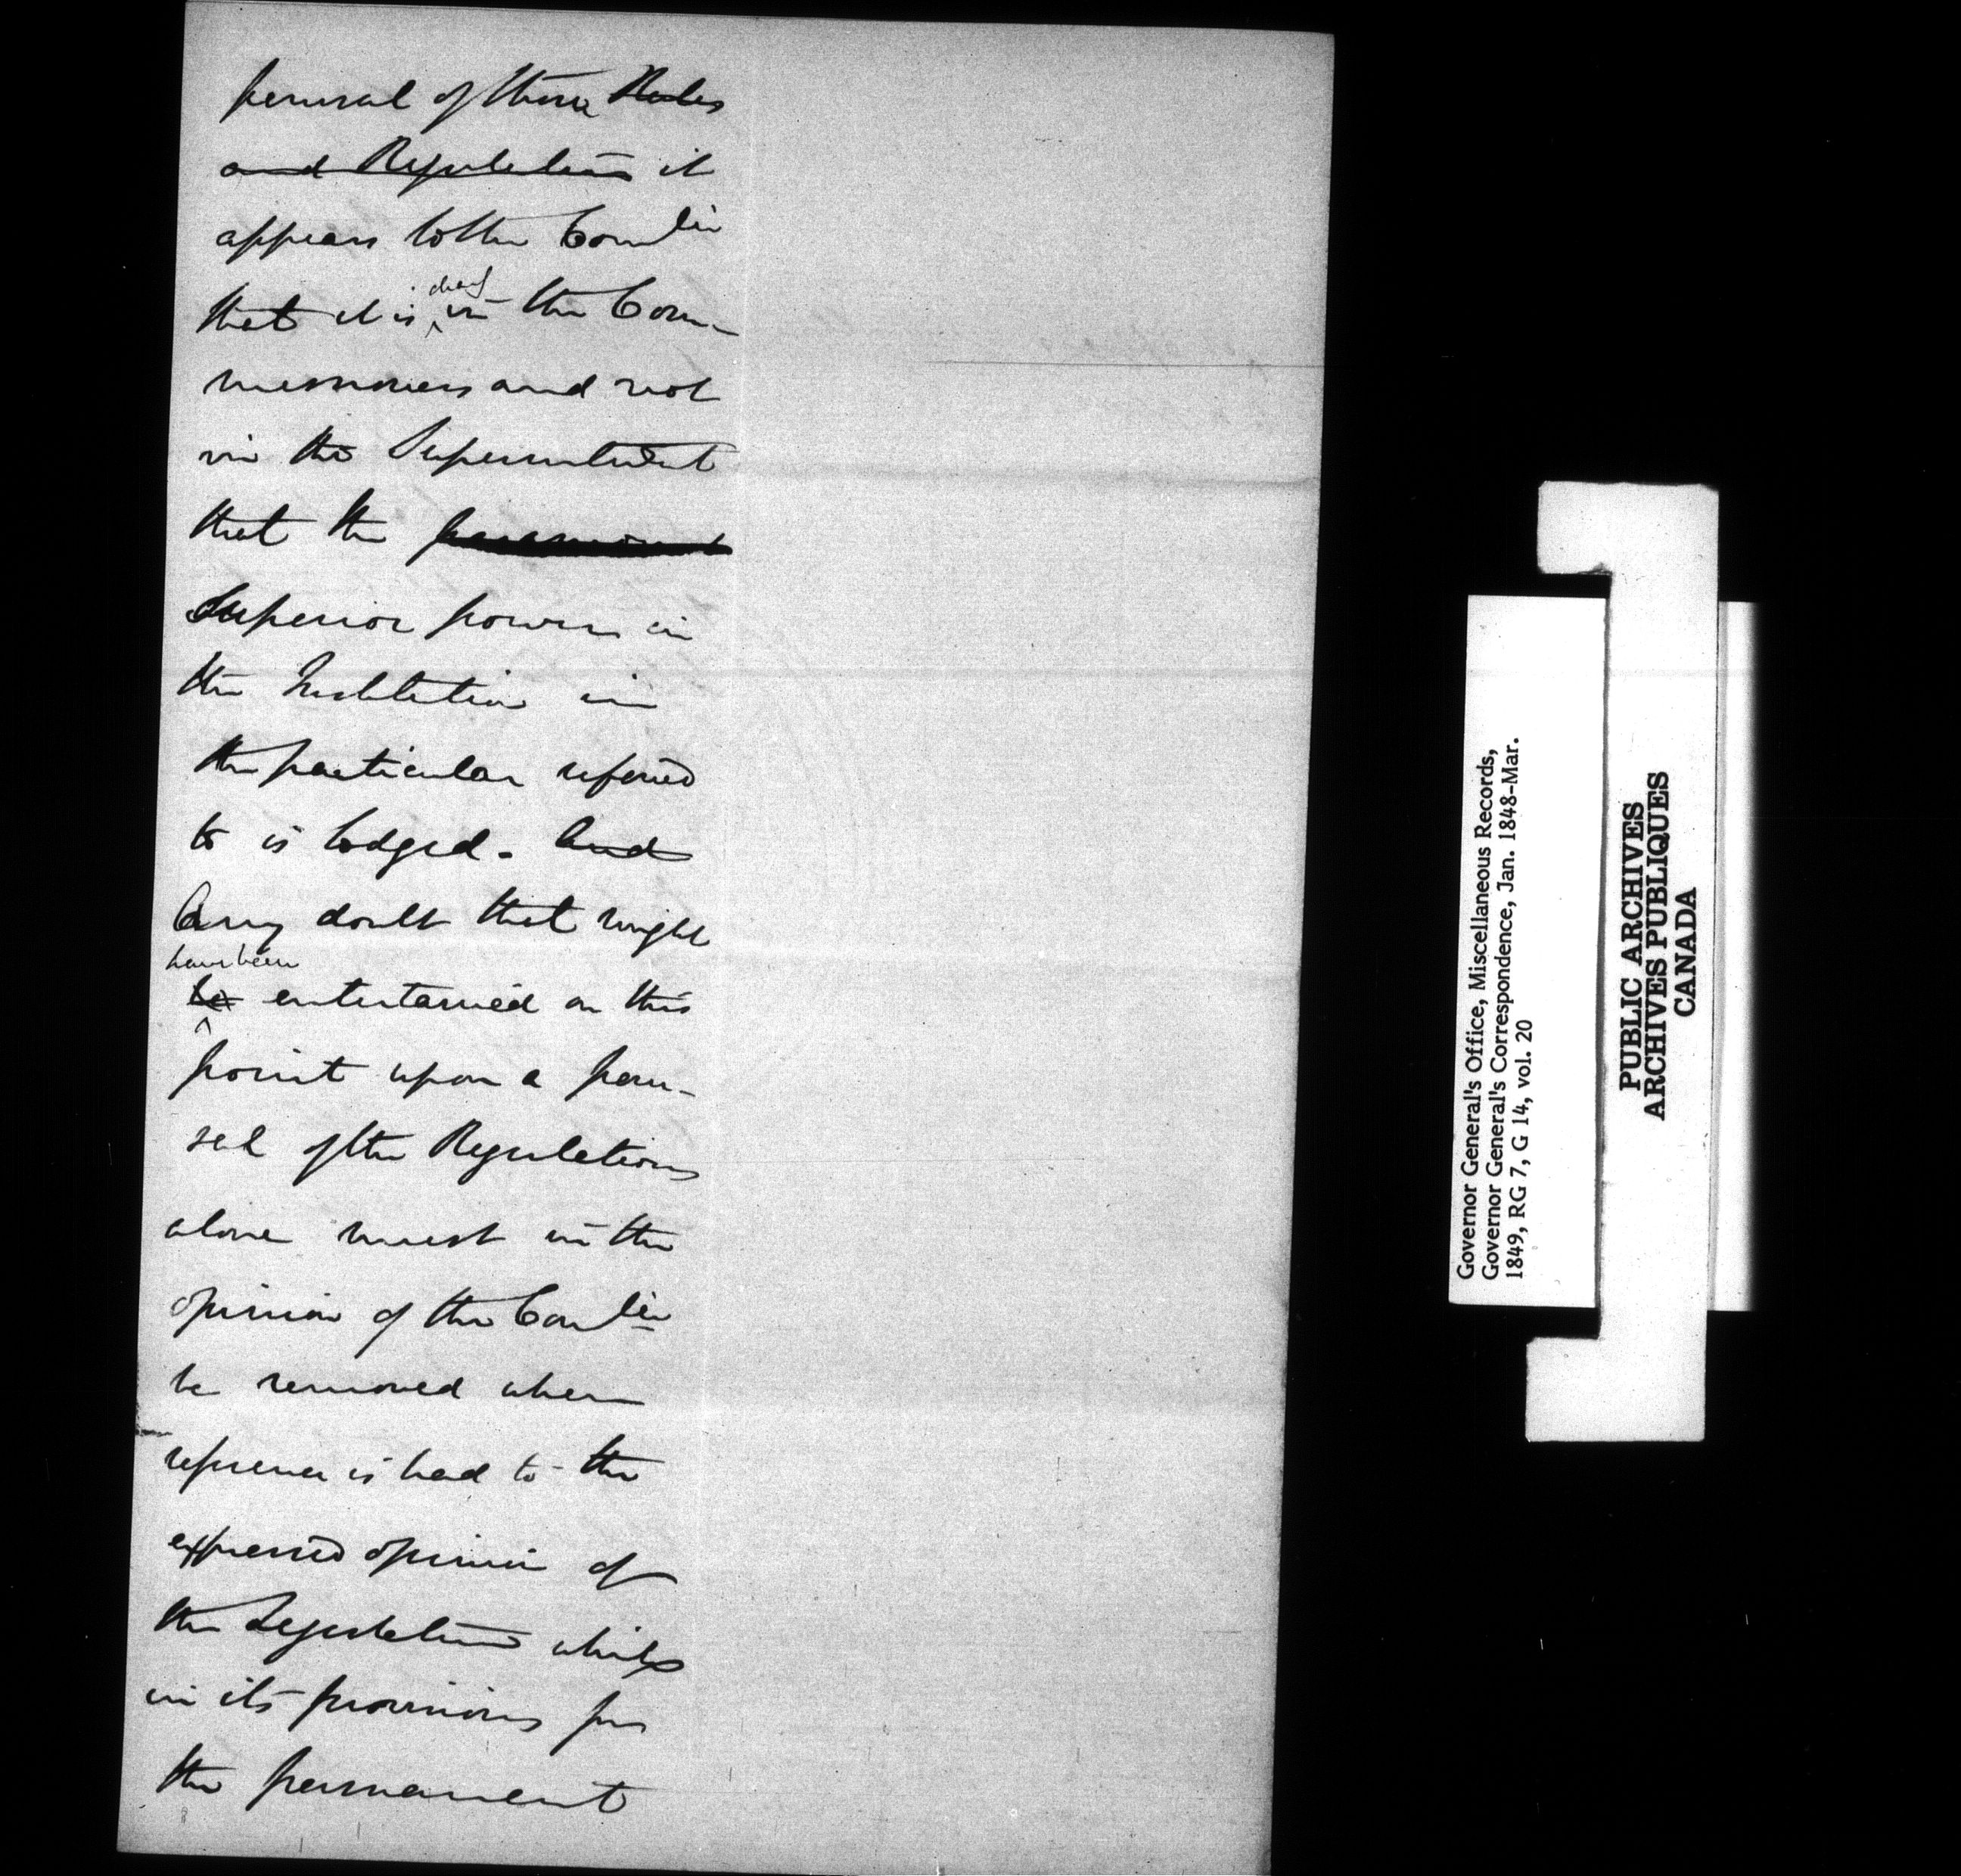 perusal of these Rules
and Regulations it
appears to the Com'ee
that it is clearly in the Com-
missioners and not
in the Superintendent
that the paramount
Superior power in
the Institution in
the particular referred
to is lodged. And
Any doubt that might
have been
be entertained on this
point upon a peru-
sal of the Regulations
alone must in the
opinion of the Com'ee
be removed when
reference is had to the
expressed opinion of
the Legislature which
in its provisions for
the permanent
Governor General's Office, Miscellaneous Records,
Governor General's Correspondence, Jan. 1848-Mar.
1849, RG 7, G 14, vol. 20
PUBLIC ARCHIVES
ARCHIVES PUBLIQUES
CANADA